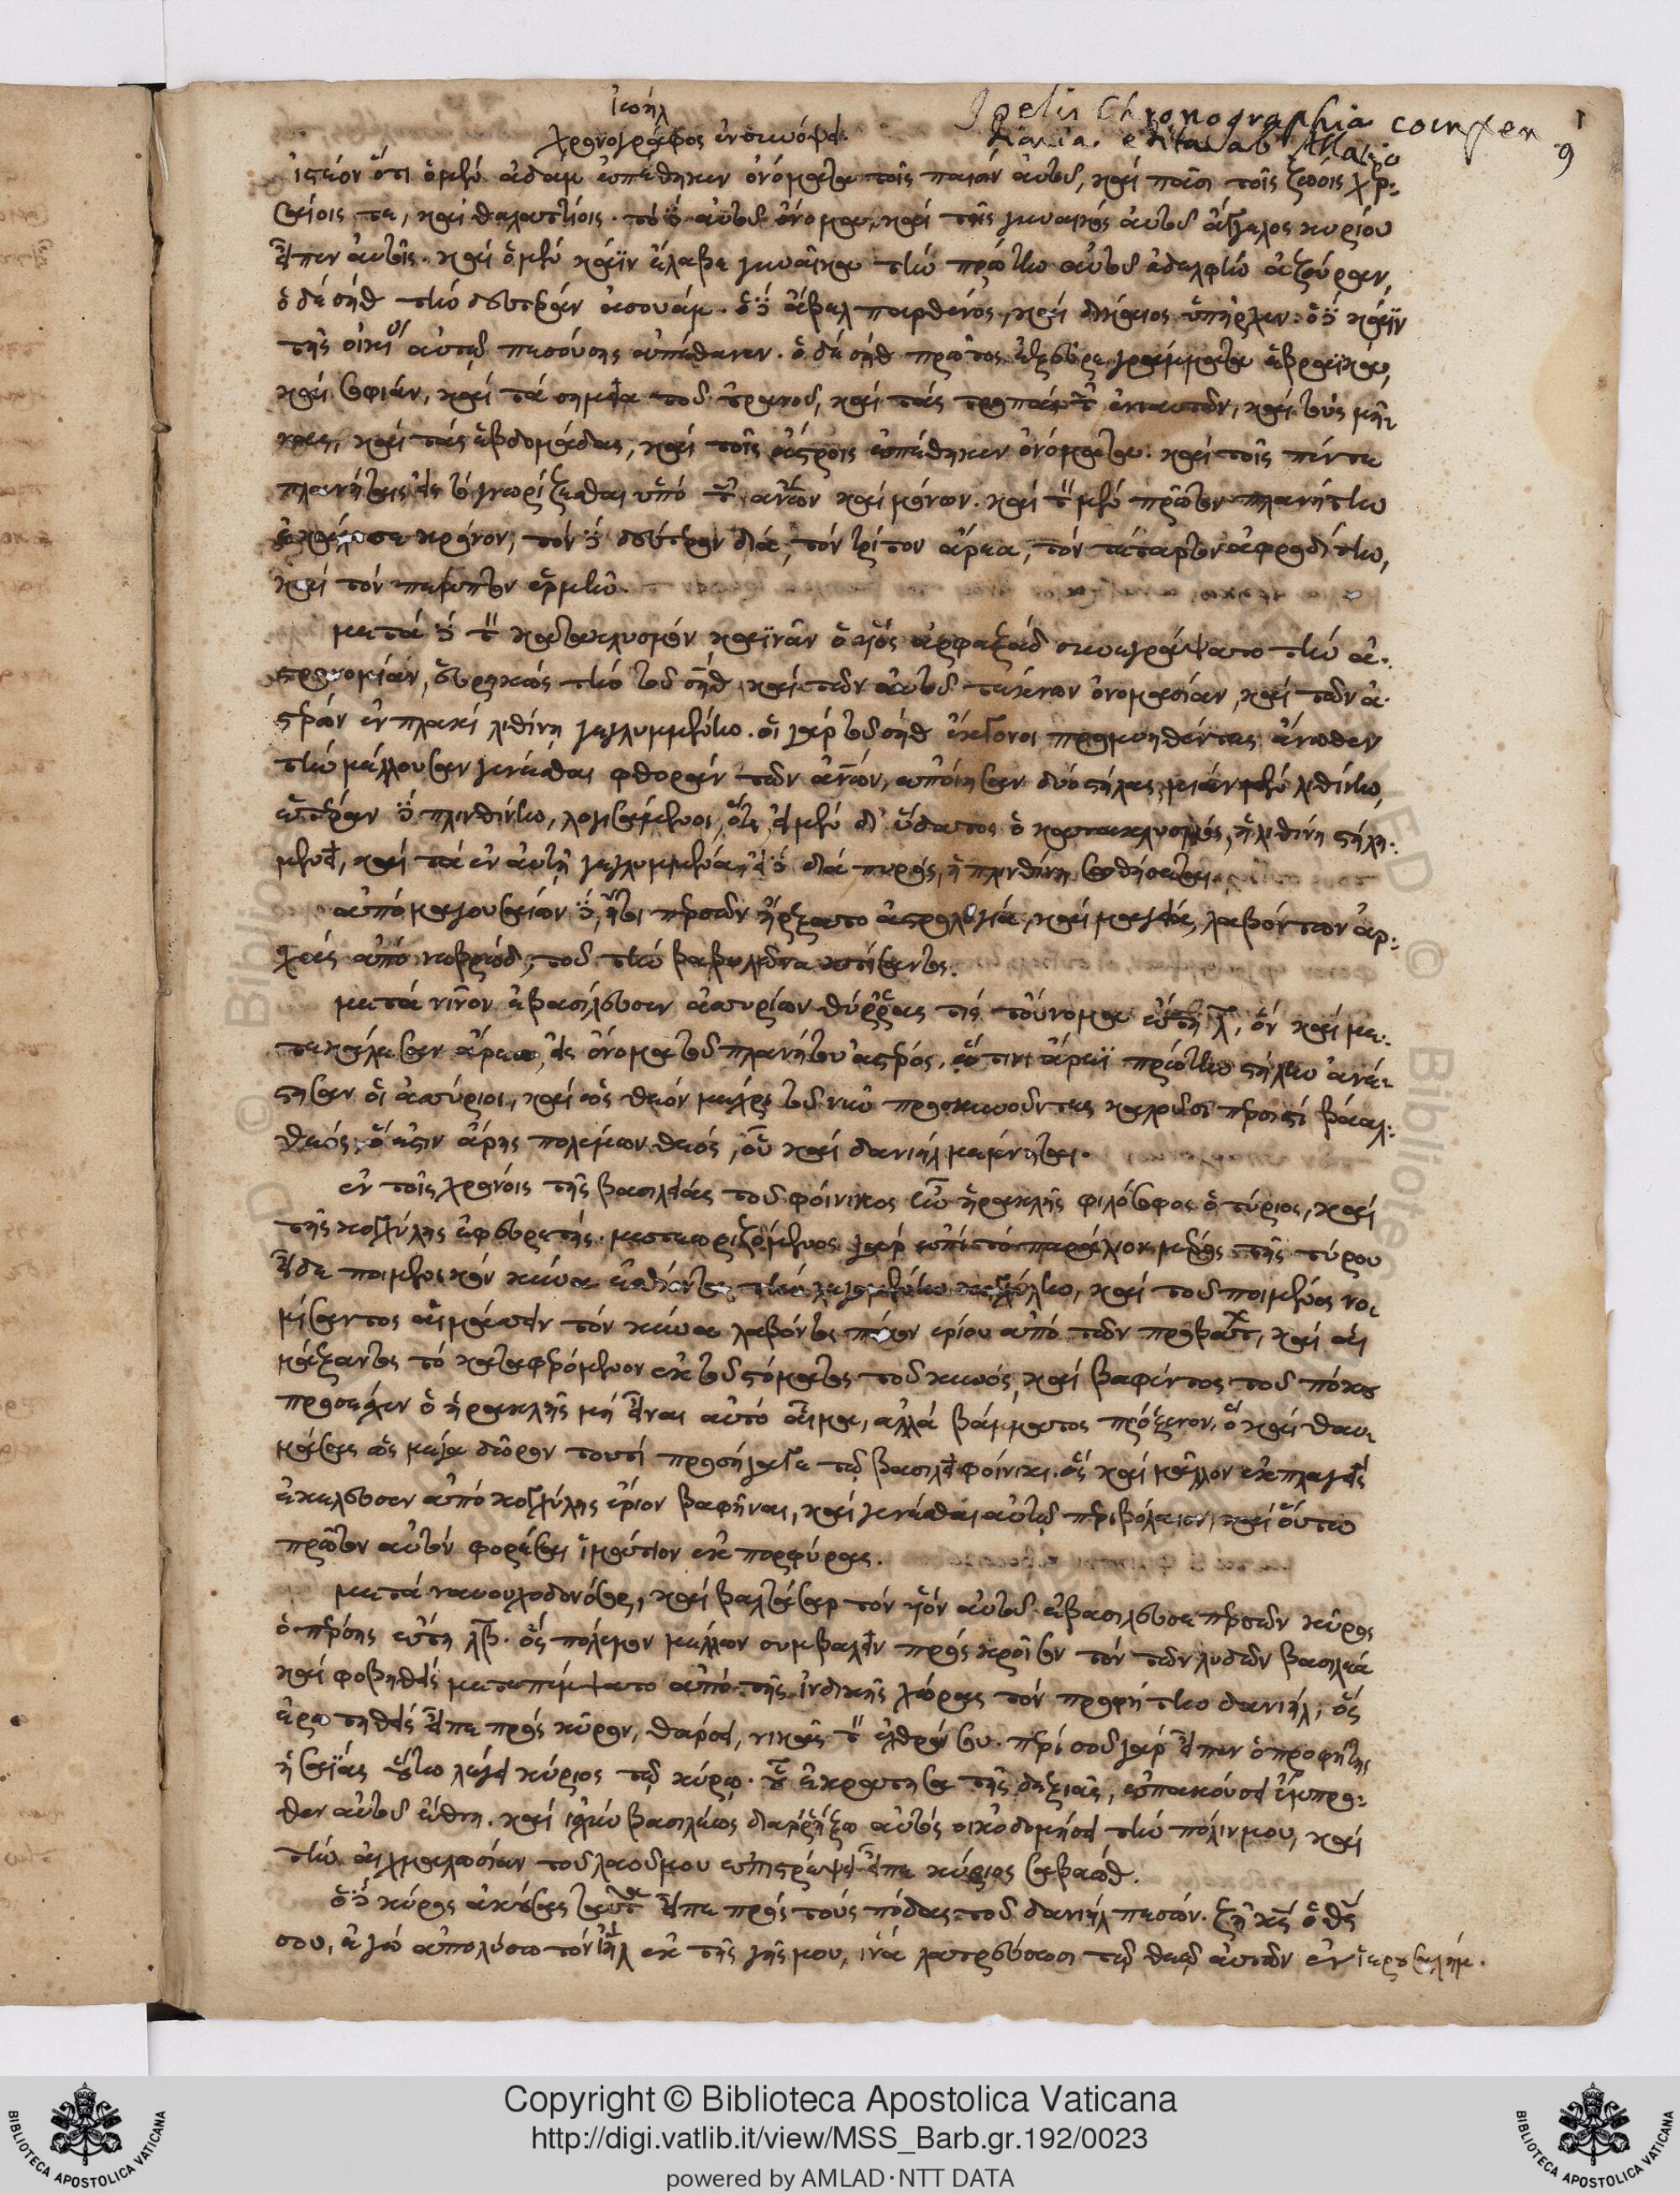 Ἰωήλ
Χρονογράφος ἐν συνόψει
Joelis Chronographia compen
diaria edita ab Allatio
1
9
ἰστέον ὅτι ὁ μὲν ἀδὰμ ἐπέθηκεν ὀνόματα τοῖς παισὶν αὐτοῦ, καὶ πᾶσι τοῖς ζώοις χερ-
σαίοις τε, καὶ θαλαττίοις. τὸ δὲ αὐτοῦ ὄνομα, καὶ τῆς γυναικὸς αὐτοῦ ἄγγελος κυρίου
εἶπεν αὐτοῖς. καὶ ὁ μὲν κάϊν ἔλαβε γυναῖκα τὴν πρώτην αὐτοῦ ἀδελφὴν ἀζούραν,
ὁ δὲ σὴθ τὴν δευτέραν ἀσουάμ. ὁ δὲ ἄβελ παρθένος, καὶ δίκαιος ὑπῆρχεν. ὁ δὲ κάϊν
τῆς οἰκίας αὐτῷ πεσούσης ἀπέθανεν. ὁ δὲ σὴθ πρῶτος ἐξεῦρε γράμματα ἑβραϊκὰ,
καὶ σοφίαν, καὶ τὰ σημεῖα τοῦ οὐρανοῦ, καὶ τὰς τροπὰς τῶν ἐνιαυτῶν, καὶ τοὺς μῆ-
νας, καὶ τὰς ἑβδομάδας, καὶ τοῖς ἄστροις ἐπέθηκεν ὀνόματα. καὶ τοῖς πέντε
πλανήταις εἰς τὸ γνωρίζεσθαι ὑπὸ τῶν ἀνῶν καὶ μόνον. καὶ τὸν μὲν πρῶτον πλανήτην
ἐκάλεσε κρόνον, τὸν δὲ δεύτερον δία, τὸν τρίτον ἄρεα, τὸν τέταρτον ἀφροδίτην,
καὶ τὸν πέμπτον ἑρμῆν.
μετὰ δὲ τὸν κατακλυσμὸν καϊνᾶν ὁ υἱὸς ἀρφαξὰδ συνεγράψατο τὴν ἀ-
στρονομίαν, εὑρηκὼς τὴν τοῦ σὴθ καὶ τῶν αὐτοῦ τέκνων ὀνομασίαν, καὶ τῶν ἀ-
στρων ἐν πλακὶ λιθίνῃ γεγλυμμένην. οἱ γὰρ τοῦ σὴθ ἔκγονοι προμηθέντες ἄνωθεν
τὴν μέλλουσαν γενέσθαι φθορὰν τῶν ἀνῶν, ἐποίησαν δύο στήλας, μίαν μὲν λιθίνην,
ἑτέραν δὲ πλινθίνην, λογισάμενοι, ὅτι εἰ μὲν δι' ὕδατος ὁ κατακλυσμὸς, ἡ λιθίνη στήλη
μενεῖ, καὶ τὰ ἐν αὐτῇ γεγλυμμένα, εἰ δὲ διὰ πυρὸς, ἡ πλινθίνη σωθήσεται.
ἀπὸ μαγουσαίων δὲ, ἤτοι περσῶν ἤρξατο ἀστρολογία, καὶ μαγεία, λαβόντων ἀρ-
χὰς ἀπὸ νεβρώδ, τοῦ τὴν βαβυλῶνα κτίσαντος.
μετὰ νῖνον ἐβασίλευσεν ἀσσυρίων θύρρας τίς τοὔνομα ἔτη λ, ὃν καὶ με-
τεκάλεσαν ἄρεα, εἰς ὄνομα τοῦ πλανήτου ἀστρός. ᾧ τινι ἄρεϊ πρώτην στήλην ἀνέ-
στησαν οἱ ἀσσύριοι, καὶ ὡς θεὸν μέχρι τοῦ νῦν προσκυνοῦντες καλοῦσι περσιστὶ βάαλ
θεὸς, ὅ ἐστιν ἄρης πολέμων θεὸς, οὗ καὶ δανιὴλ μέμνηται.
ἐν τοῖς χρόνοις τῆς βασιλείας τοῦ φοίνικος ἦν ἡρακλῆς φιλόσοφος ὁ τύριος, καὶ
τῆς κογχύλης ἐφευρετής. μετεωριζόμενος γὰρ ἐπὶ τὸ παράλιον μέρος τῆς τύρου
εἶδε ποιμενικὸν κύνα ἐσθίοντα τὴν λεγομένην κογχύλην, καὶ τοῦ ποιμένος νο-
μίσαντος αἱμάσσειν τὸν κύνα λαβόντος πόκον ἐρίου ἀπὸ τῶν προβάτων, καὶ ἐκ-
μάξαντος τὸ καταφερόμενον ἐκ τοῦ στόματος τοῦ κυνὸς, καὶ βαφέντος τοῦ πόκου
προσέσχεν ὁ ἡρακλῆς μὴ εἶναι αὐτὸ αἷμα, ἀλλὰ βάμματος πρόξενον, ὃ καὶ θαυ-
μάσας ὡς μέγα δῶρον τουτὶ προσήγαγε τῷ βασιλεῖ φοίνικι. ὃς καὶ μᾶλλον ἐκπλαγεὶς
ἐκέλευσεν ἀπὸ κογχύλης ἔριον βαφῆναι, καὶ γενέσθαι αὐτῷ περιβόλαιον, καὶ οὕτω
πρῶτον αὐτὸν φορέσαι ἱμάτιον ἐκ πορφύρας.
μετὰ ναυουχοδονόσορ, καὶ βαλτάσαρ τὸν υἱὸν αὐτοῦ ἐβασίλευσε περσῶν κῦρος
ὁ πέρσης ἔτη λβ. ὃς πόλεμον μέλλων συμβαλεῖν πρὸς κροῖσον τὸν τῶν λυδῶν βασιλέα
καὶ φοβηθεὶς μετεπέμψατο ἀπὸ τῆς ἰνδικῆς χώρας τὸν προφήτην δανιὴλ, ὃς
ἐρωτηθεὶς εἶπε πρὸς κῦρον, θάρσει, νικᾷς τὸν ἐχθρόν σου. περὶ σοῦ γὰρ εἶπεν ὁ προφήτης
ἡσαΐας οὕτω λέγει κύριος τῷ κύρῳ. οὗ ἐκράτησα τῆς δεξιᾶς, ἐπακούσει ἔμπρο-
σθεν αὐτοῦ ἔθνη. καὶ ἰσχὺν βασιλέως διαρρήξω αὐτὸς οἰκοδομήσει τὴν πόλιν μου, καὶ
τὴν αἰχμαλωσίαν τοῦ λαοῦ μου ἐπιστρέψει εἶπε κύριος σαβαώθ.
ὁ δὲ κύρος ἀκούσας ταῦτα εἶπε πρὸς τοὺς πόδας τοῦ δανιὴλ πεσών. ζῇ κς ὁ θς
σου, ἐγὼ ἀπολύσω τὸν ἰηλ ἐκ τῆς γῆς μου, ἵνα λατρεύσωσι τῷ θεῷ αὐτῶν ἐν ἱερουσαλήμ.
Copyright © Biblioteca Apostolica Vaticana
http://digi.vatlib.it/view/MSS_Barb.gr.192/0023
powered by AMLAD·NTT DATA